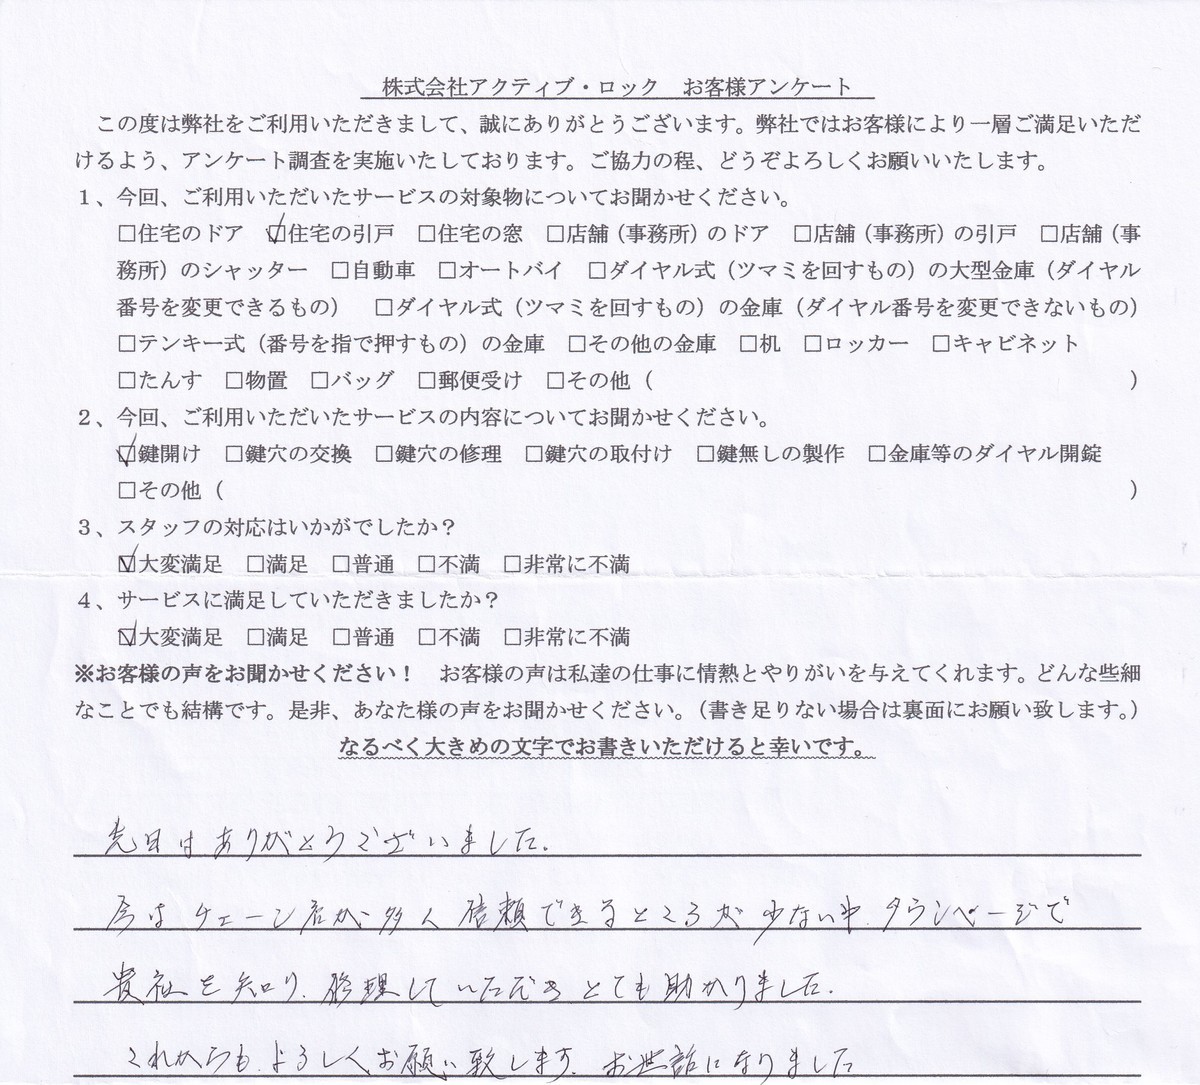 株式会社アクティブ・ロック　お客様アンケート
この度は弊社をご利用いただきまして、誠にありがとうございます。弊社ではお客様により一層ご満足いただ
けるよう、アンケート調査を実施いたしております。ご協力の程、どうぞよろしくお願いいたします。
1、今回、ご利用いただいたサービスの対象物についてお聞かせください。
□住宅のドア　☑住宅の引戸　□住宅の窓　□店舗（事務所）のドア　□店舗（事務所）の引戸　□店舗（事
務所）のシャッター　□自動車　□オートバイ　□ダイヤル式（ツマミを回すもの）の大型金庫（ダイヤル
番号を変更できるもの）　□ダイヤル式（ツマミを回すもの）の金庫（ダイヤル番号を変更できないもの）
□テンキー式（番号を指で押すもの）の金庫　□その他の金庫　□机　□ロッカー　□キャビネット
□たんす　□物置　□バッグ　□郵便受け　□その他（　　　　　）
2、今回、ご利用いただいたサービスの内容についてお聞かせください。
☑鍵開け　□鍵穴の交換　□鍵穴の修理　□鍵穴の取付け　□鍵無しの製作　□金庫等のダイヤル開錠
□その他（　　　　　）
3、スタッフの対応はいかがでしたか？
☑大変満足　□満足　□普通　□不満　□非常に不満
4、サービスに満足していただきましたか？
☑大変満足　□満足　□普通　□不満　□非常に不満
※お客様の声をお聞かせください！　お客様の声は私達の仕事に情熱とやりがいを与えてくれます。どんな些細
なことでも結構です。是非、あなた様の声をお聞かせください。（書き足りない場合は裏面にお願い致します。）
なるべく大きめの文字でお書きいただけると幸いです。
先日はありがとうございました.
今はチェーン店が多く信頼できるところが少ない中.タウンページで
貴社を知り、修理していただきとても助かりました.
これからも、よろしくお願い致します.お世話になりました